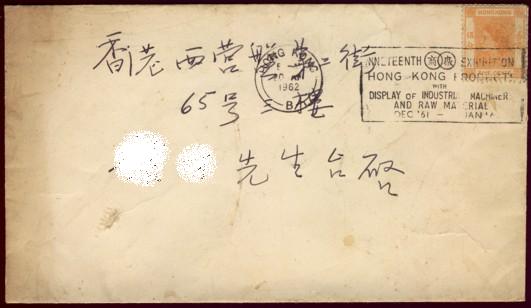 香港西营盤第三街
65号三樓
先生台啟
HONG KONG
1962
B
HONG KONG
NINETEENTH EXHIBITION
HONG KONG PRODUCTS
WITH
DISPLAY OF INDUSTRIAL MACHINERY
AND RAW MATERIAL
DEC '61 – JAN